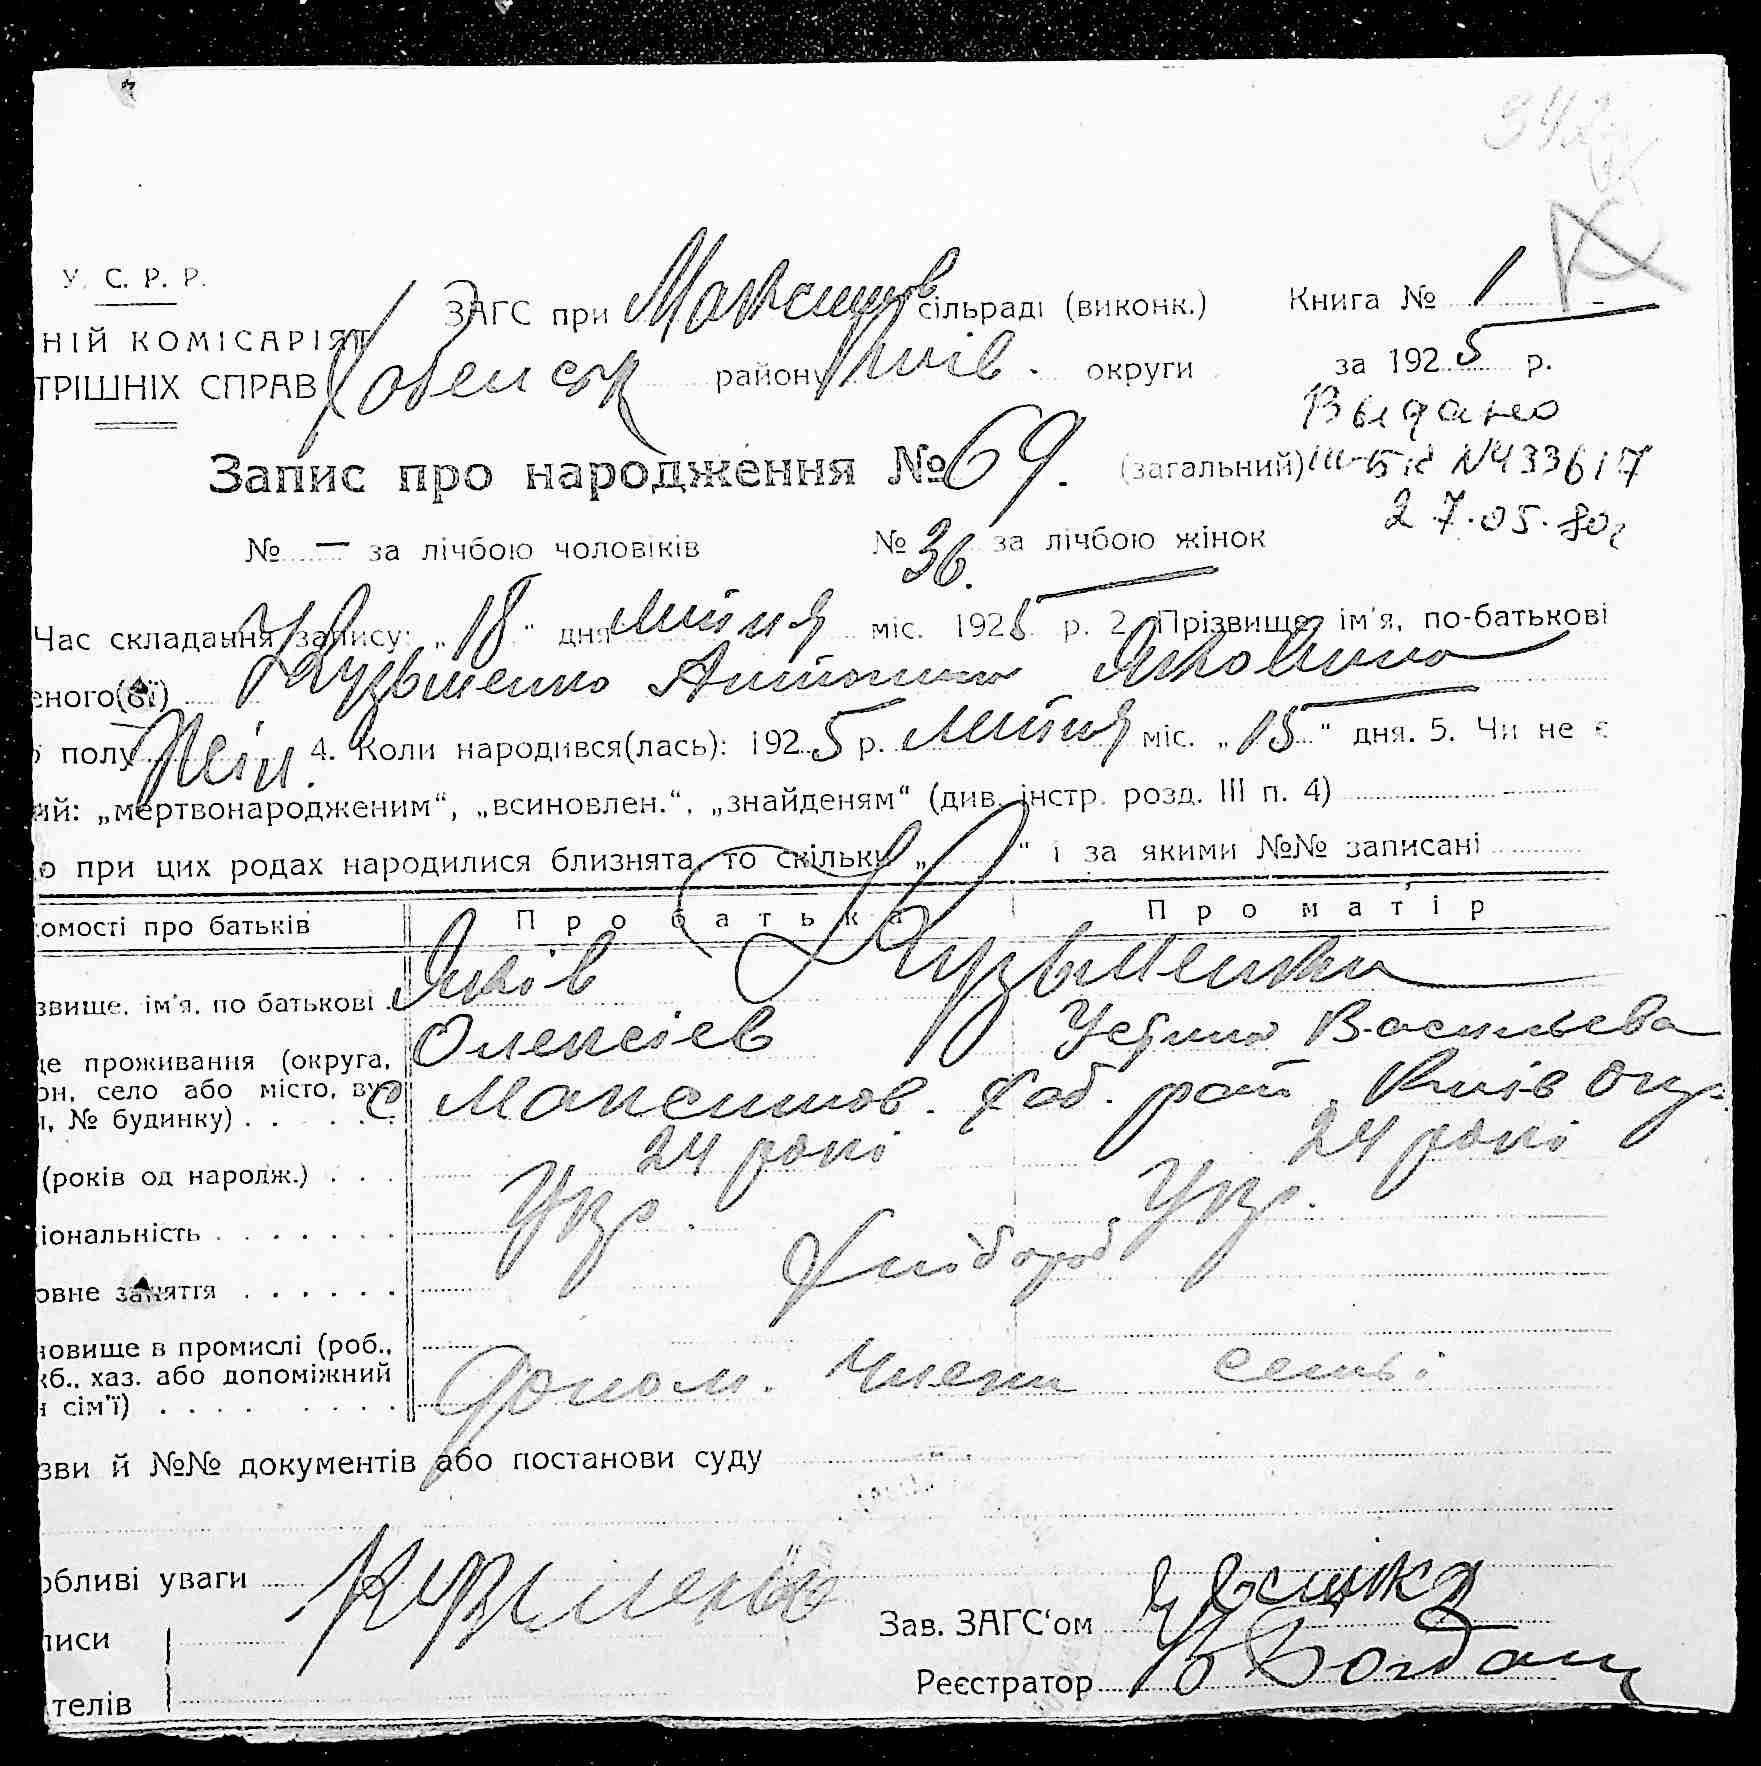 У. С. Р. Р.
ЗАГС при Максимов сільраді (виконк.) Книга № 1
НІЙ КОМІСАРІЯТ
ТРІШНІХ СПРАВ Хабенськ району Київ. округи за 1925 р.
Выдано
Запис про народження № 69. (загальний) III-БК N433617
27.05.80г
№ — за лічбою чоловіків № 36. за лічбою жінок
Час складання запису: „18" дня липня міс. 1925 р. 2. Прізвище, ім'я, по-батькові
еного(ої) Кузьменко Антонина Яковина
полу жін. 4. Коли народився(лась): 1925 р. липня міс. „15" дня. 5. Чи не є
ий: „мертвонародженим", „всиновлен.", „знайденям" (див. інстр. розд. III п. 4)
о при цих родах народилися близнята, то скільки „ " і за якими №№ записані
омості про батьків Про батька Про матір
Кузьменки
звище, ім'я, по батькові Яків
Олексієв Устина Васильева
це проживання (округа,
он, село або місто, ву
, № будинку) с Максимов. Хаб. рай. Київ окр.
(років од народж.) 24 роки 24 роки
іональність Укр. Укр.
овне заняття Хліборob
новище в промислі (роб.,
кб., хаз. або допоміжний
н сім'ї) Допом. члени семьі
зви й №№ документів або постанови суду
обливі уваги
Кузьменко
Зав. ЗАГС'ом
писи
Реєстратор
телів